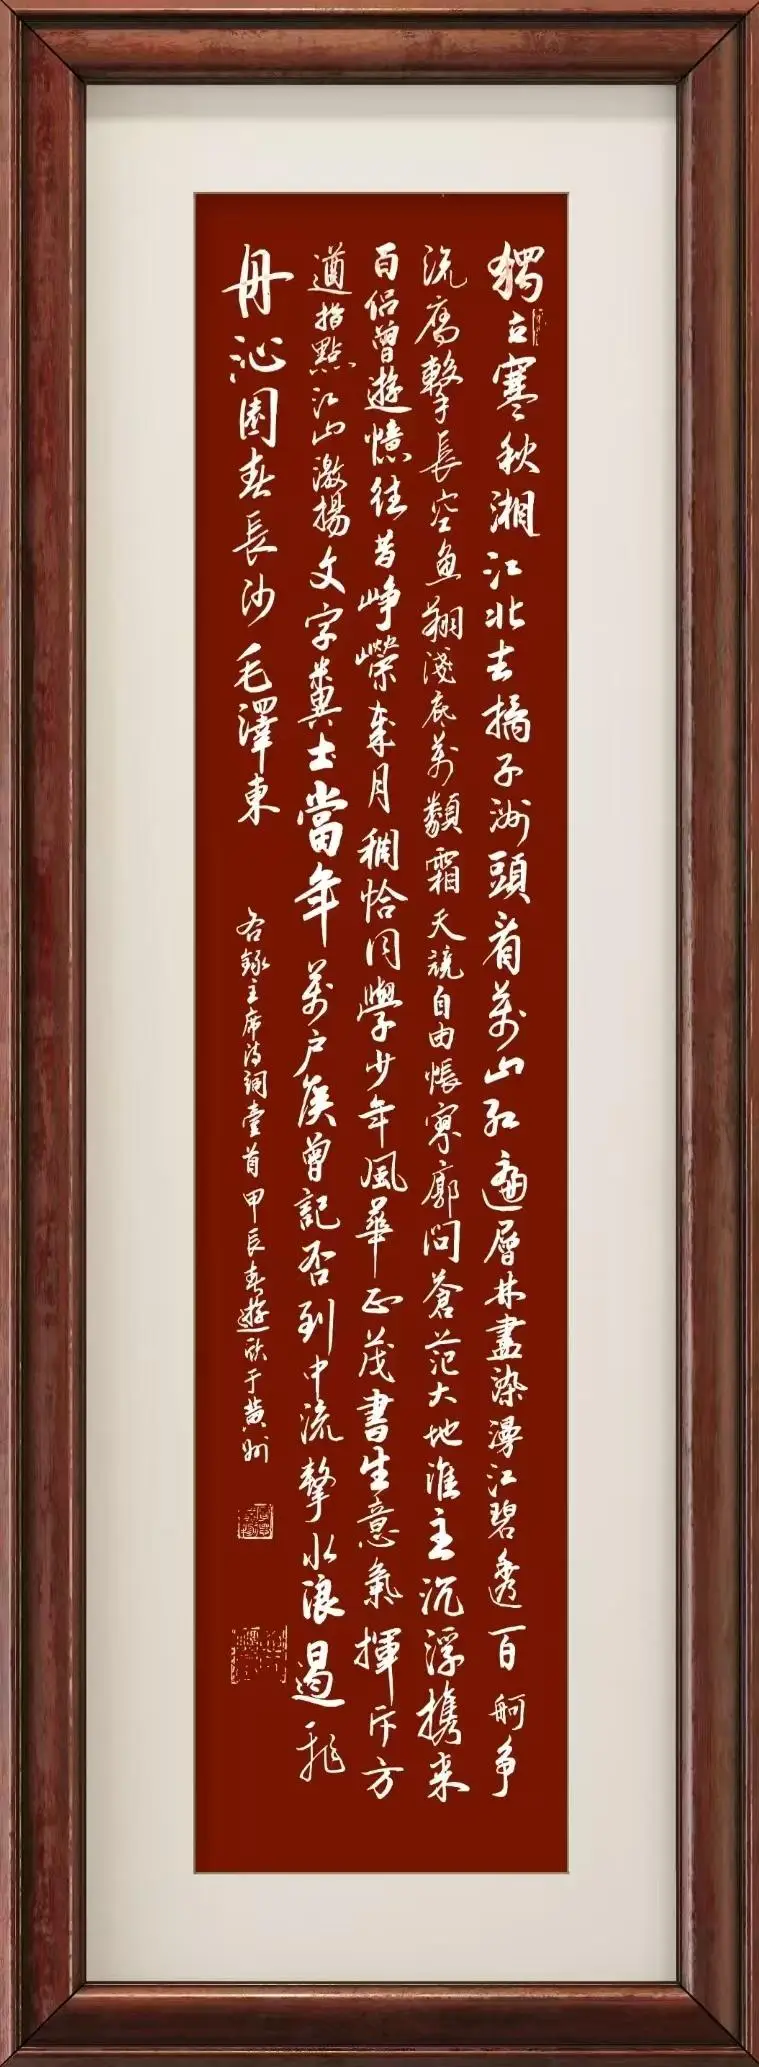 獨立寒秋湘江北去橘子洲頭看萬山紅遍層林盡染漫江碧透百舸爭
流鷹擊長空魚翔淺底萬類霜天競自由悵寥廓問蒼茫大地誰主沉浮攜来
百侶曾遊憶往昔崢嶸歲月稠恰同學少年風華正茂書生意氣揮斥方
遒指點江山激揚文字糞土當年萬户侯曾記否到中流擊水浪遏飛
舟沁園春長沙毛澤東
右錄主席詩詞壹首甲辰春遊欣于黄州